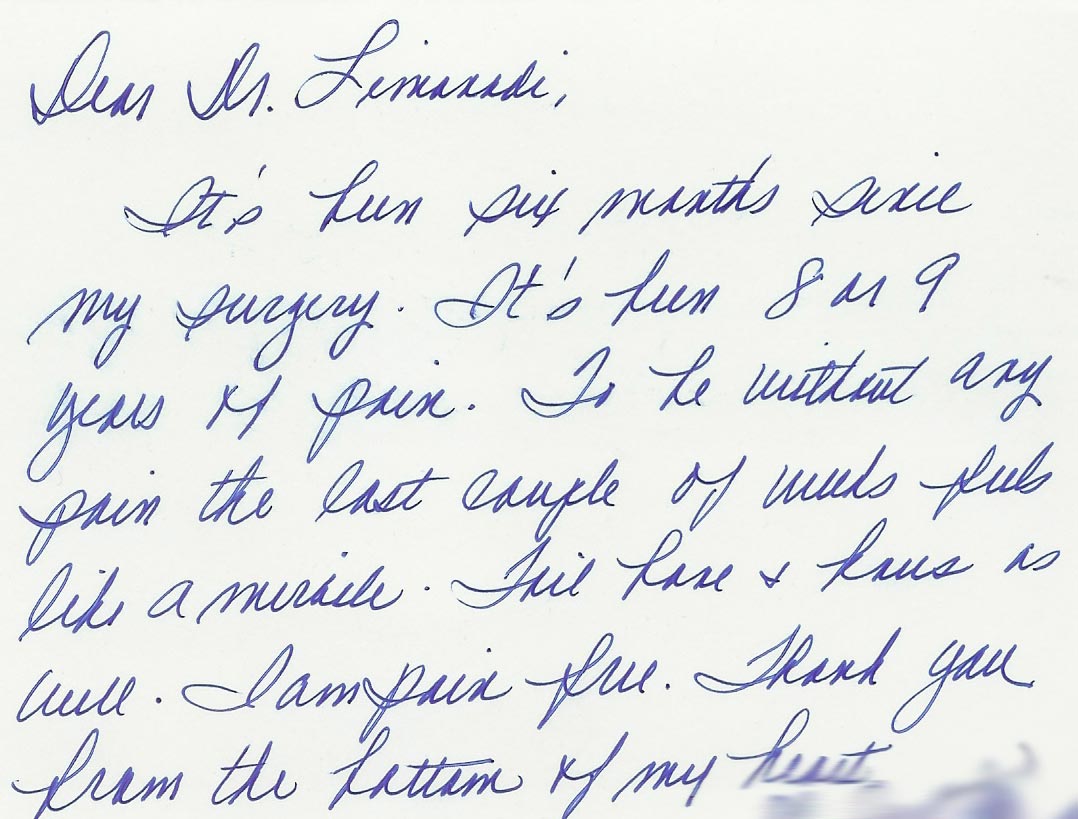 Dear Dr. Limonadi,
It's been six months since
my surgery. It's been 8 or 9
years of pain. To be without any
pain the last couple of weeks feels
like a miracle. Tail bone & knees as
well. I am pain free. Thank you
from the bottom of my heart.